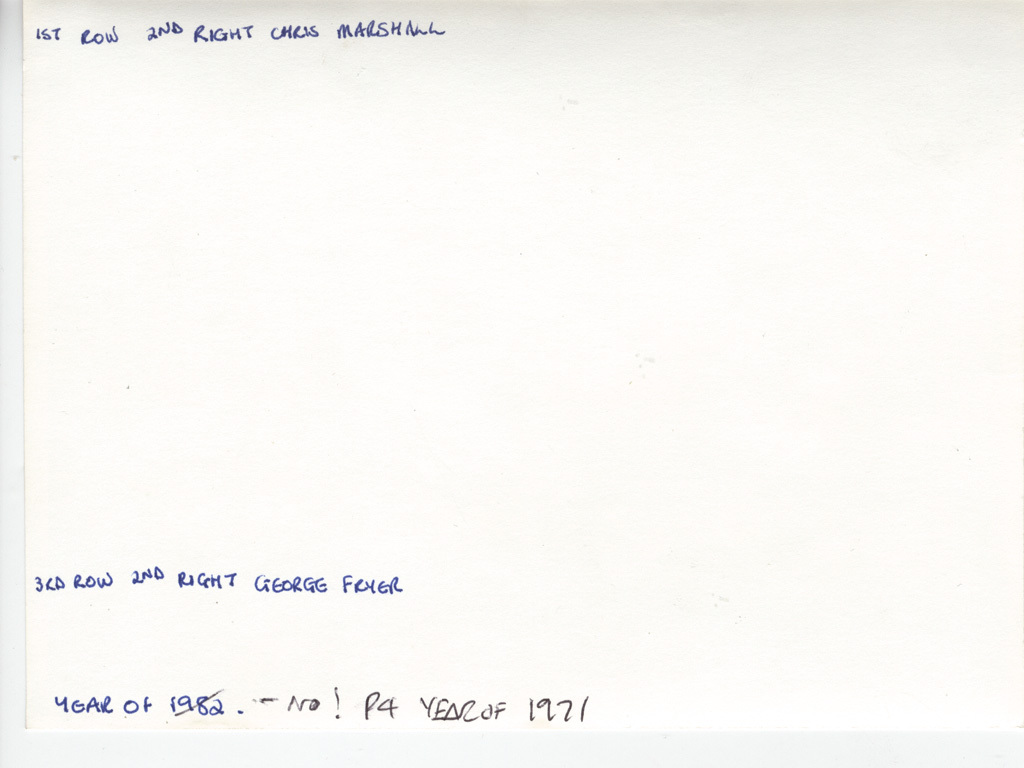 1ST ROW 2ND RIGHT CHRIS MARSHALL
3RD ROW 2ND RIGHT GEORGE FRYER
YEAR OF 1982. - NO! P4 YEAR OF 1971